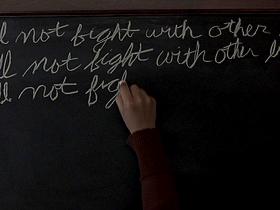 not fight with other
not fight with other
not fig